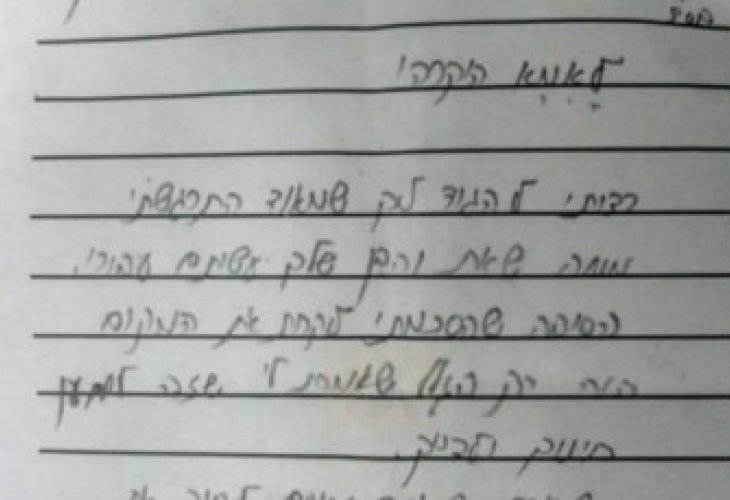 בס"ד
לאמא היקרה!
רציתי להגיד לך שמאוד התרגשתי
ממה שאת והבן שלך עשיתם עבורי.
הסיבה שהסכמתי לקחת את המקום
היה רק בגלל שאמרת לי שזה למען
חינוך הבנים.